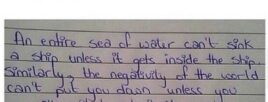 An entire sea of water can't sink
a ship unless it gets inside the ship.
Similarly, the negativity of the world
can't put you down unless you